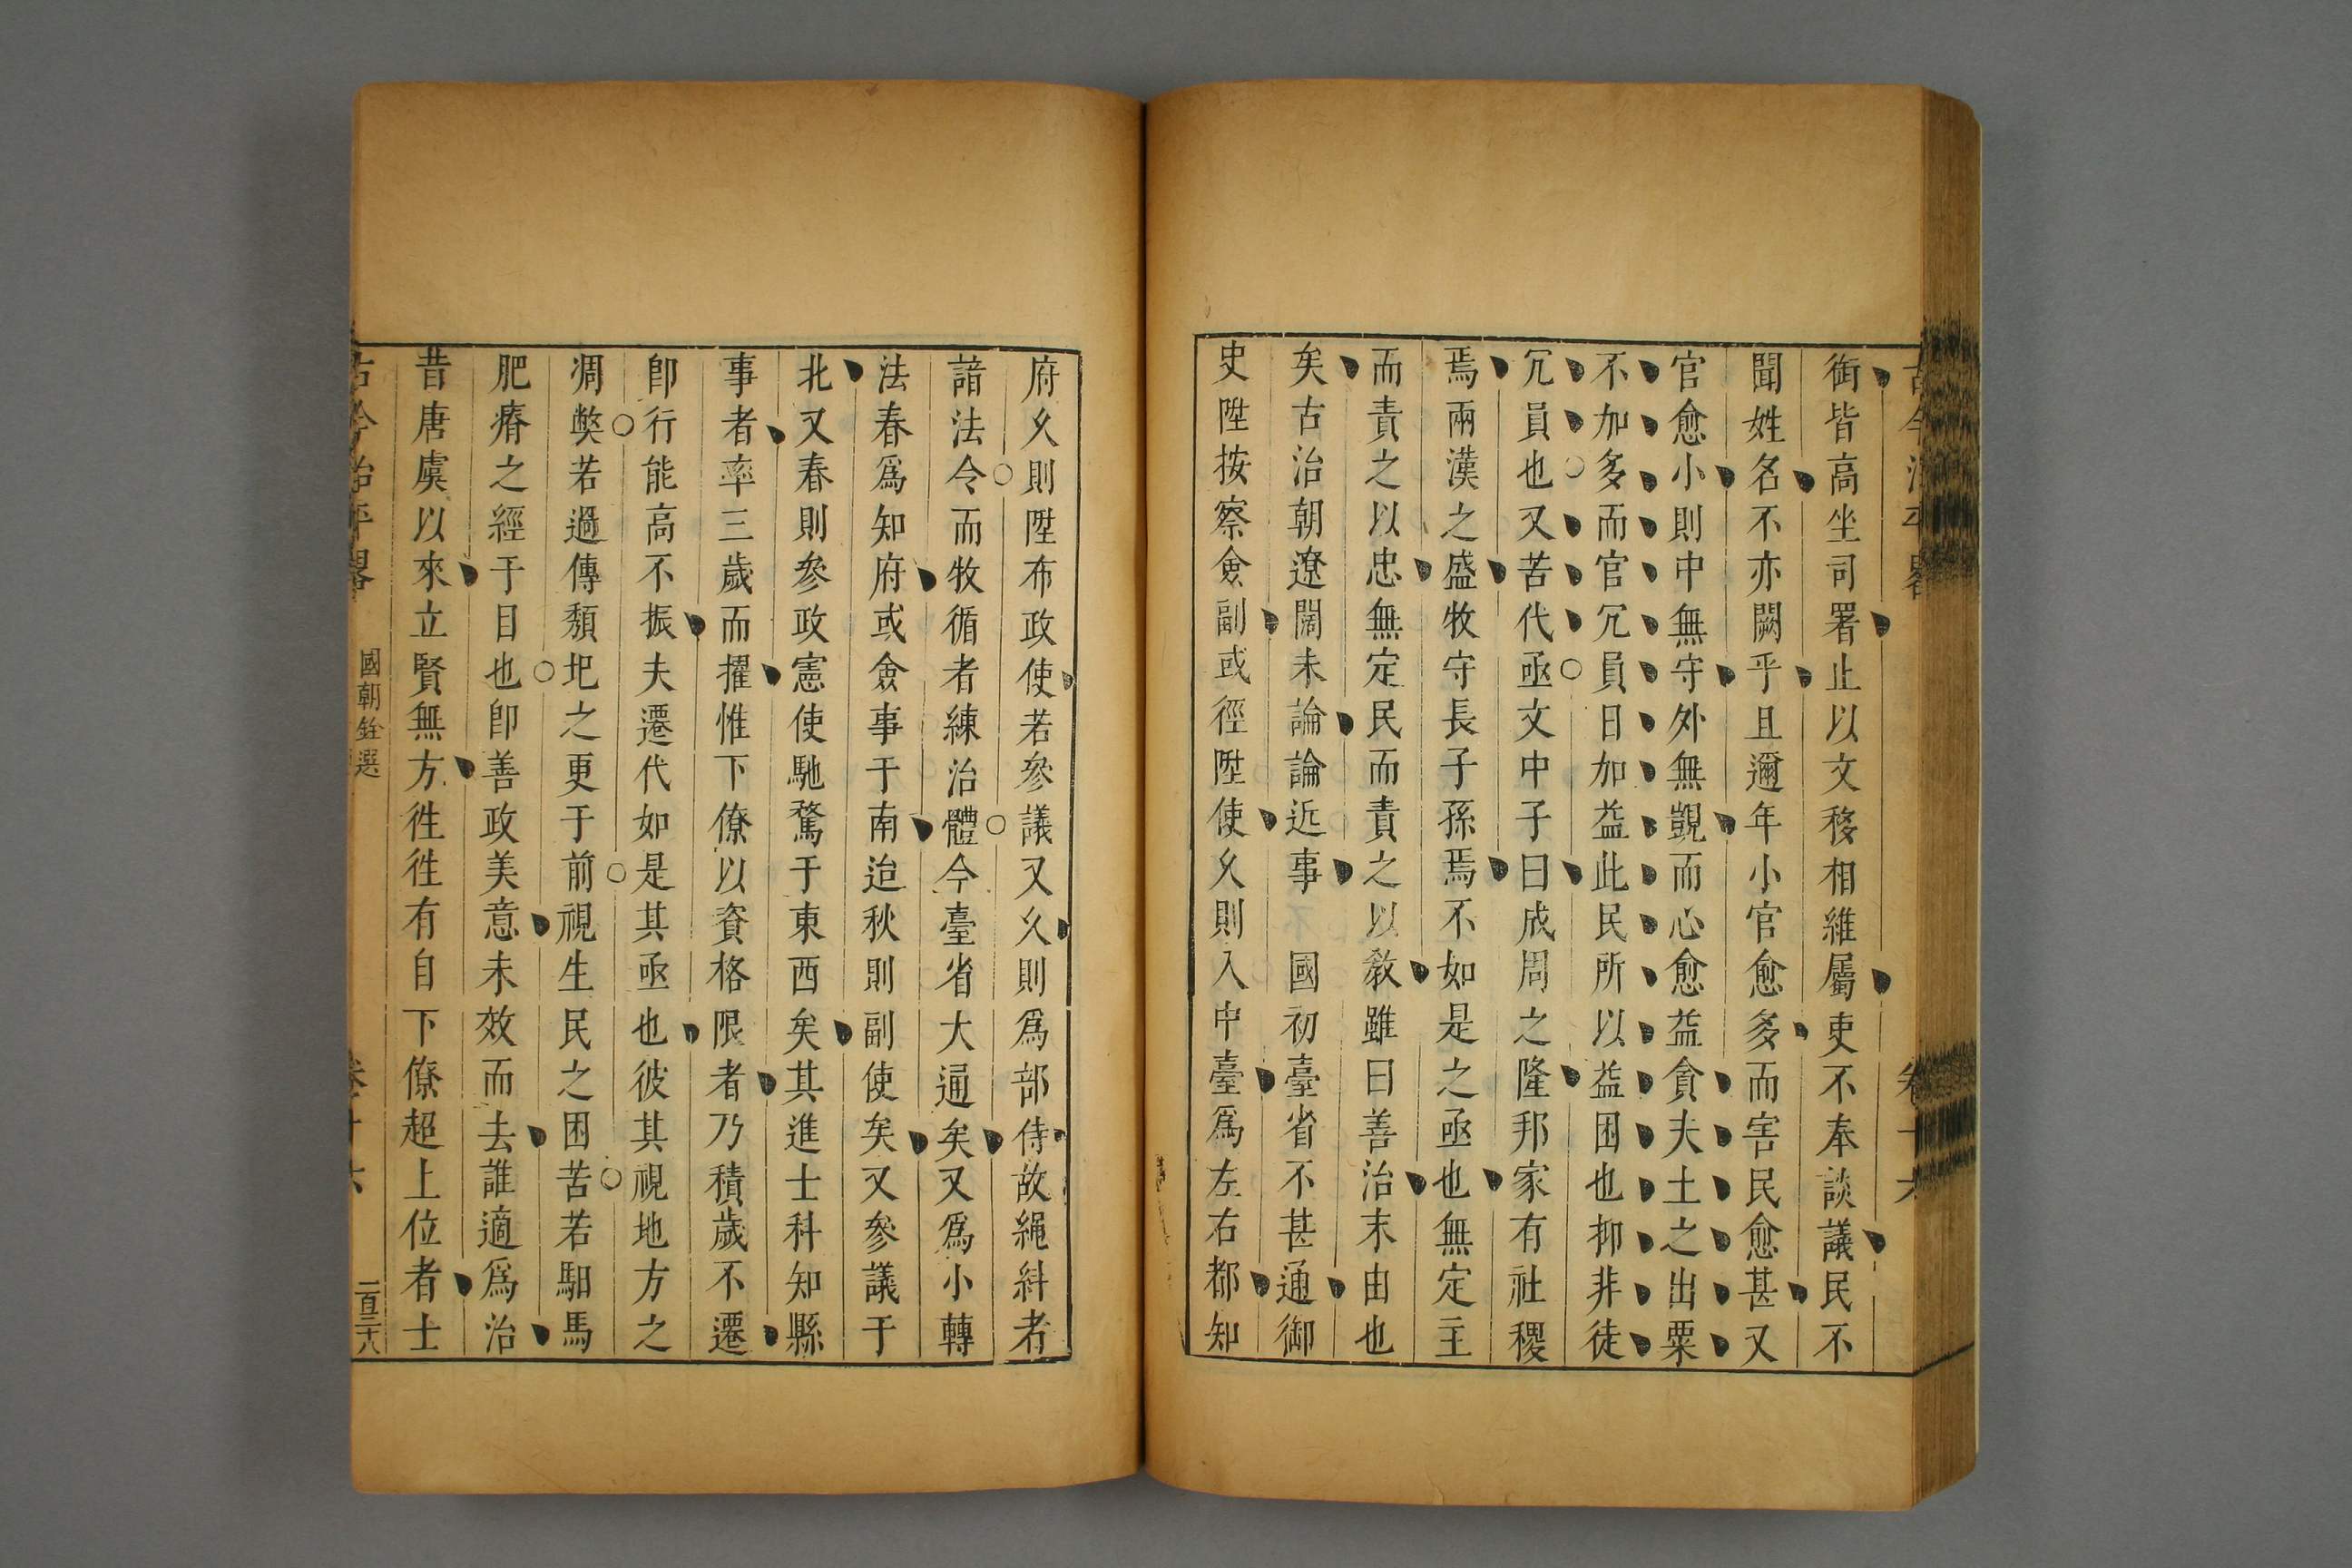 古今治平畧
卷十六
銜皆高坐司署止以文移相維屬吏不奉談議民不
聞姓名不亦闕乎且邇年小官愈多而害民愈甚又
官愈小則中無守外無覬而心愈益貪夫土之出粟
不加多而官冗員日加益此民所以益困也抑非徒
冗員也又苦代亟文中子曰成周之隆邦家有社稷
焉兩漢之盛牧守長子孫焉不如是之亟也無定主
而責之以忠無定民而責之以敎雖曰善治末由也
矣古治朝遼闊未論論近事　國初臺省不甚通御
史陞按察僉副或徑陞使乆則入中臺爲左右都知
府乆則陞布政使若參議又乆則爲部侍故繩糾者
諳法令而牧循者練治體今臺省大通矣又爲小轉
法春爲知府或僉事于南迨秋則副使矣又參議于
北又春則參政憲使馳騖于東西矣其進士科知縣
事者率三歲而擢惟下僚以資格限者乃積歲不遷
卽行能高不振夫遷代如是其亟也彼其視地方之
凋獘若過傳頽圯之更于前視生民之困苦若駔馬
肥瘠之經于目也卽善政美意未效而去誰適爲治
昔唐虞以來立賢無方徃徃有自下僚超上位者士
古今治平畧
國朝銓選
卷十六
一百三十八